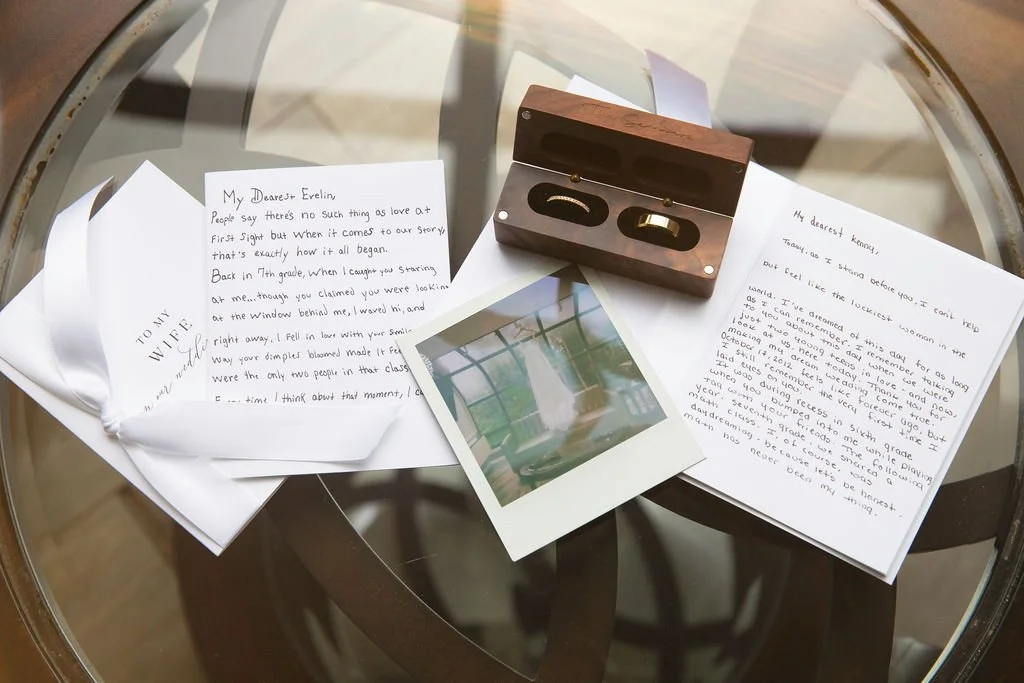 TO MY
WIFE
My Dearest Evelin,
People say there's no such thing as love at
First sight but when it comes to our story,
that's exactly how it all began.
Back in 7th grade, when I caught you staring
at me...though you claimed you were looking
at the window behind me, I waved hi, and
right away, I fell in love with your smile
way your dimples bloomed made it feel
were the only two people in that class
Every time I think about that moment, I
My dearest Kenny,
Today, as I stand before you, I can't help
but feel like the luckiest woman in the
world. I've dreamed of this day for as long
as I can remember. I remember talking
to you about this day when we were
just two young teens in love and now,
look at us, here today. Thank you for
making my dream wedding come true.
October 17, 2012 feels like forever ago, but
I still remember the very first time I
laid eyes on you. It was during recess in sixth grade
when you bumped into me while playing
tag with your friends. The following
year, seventh grade, we shared a
math class. I, of course, was
daydreaming, because let's be honest,
math has never been my thing.